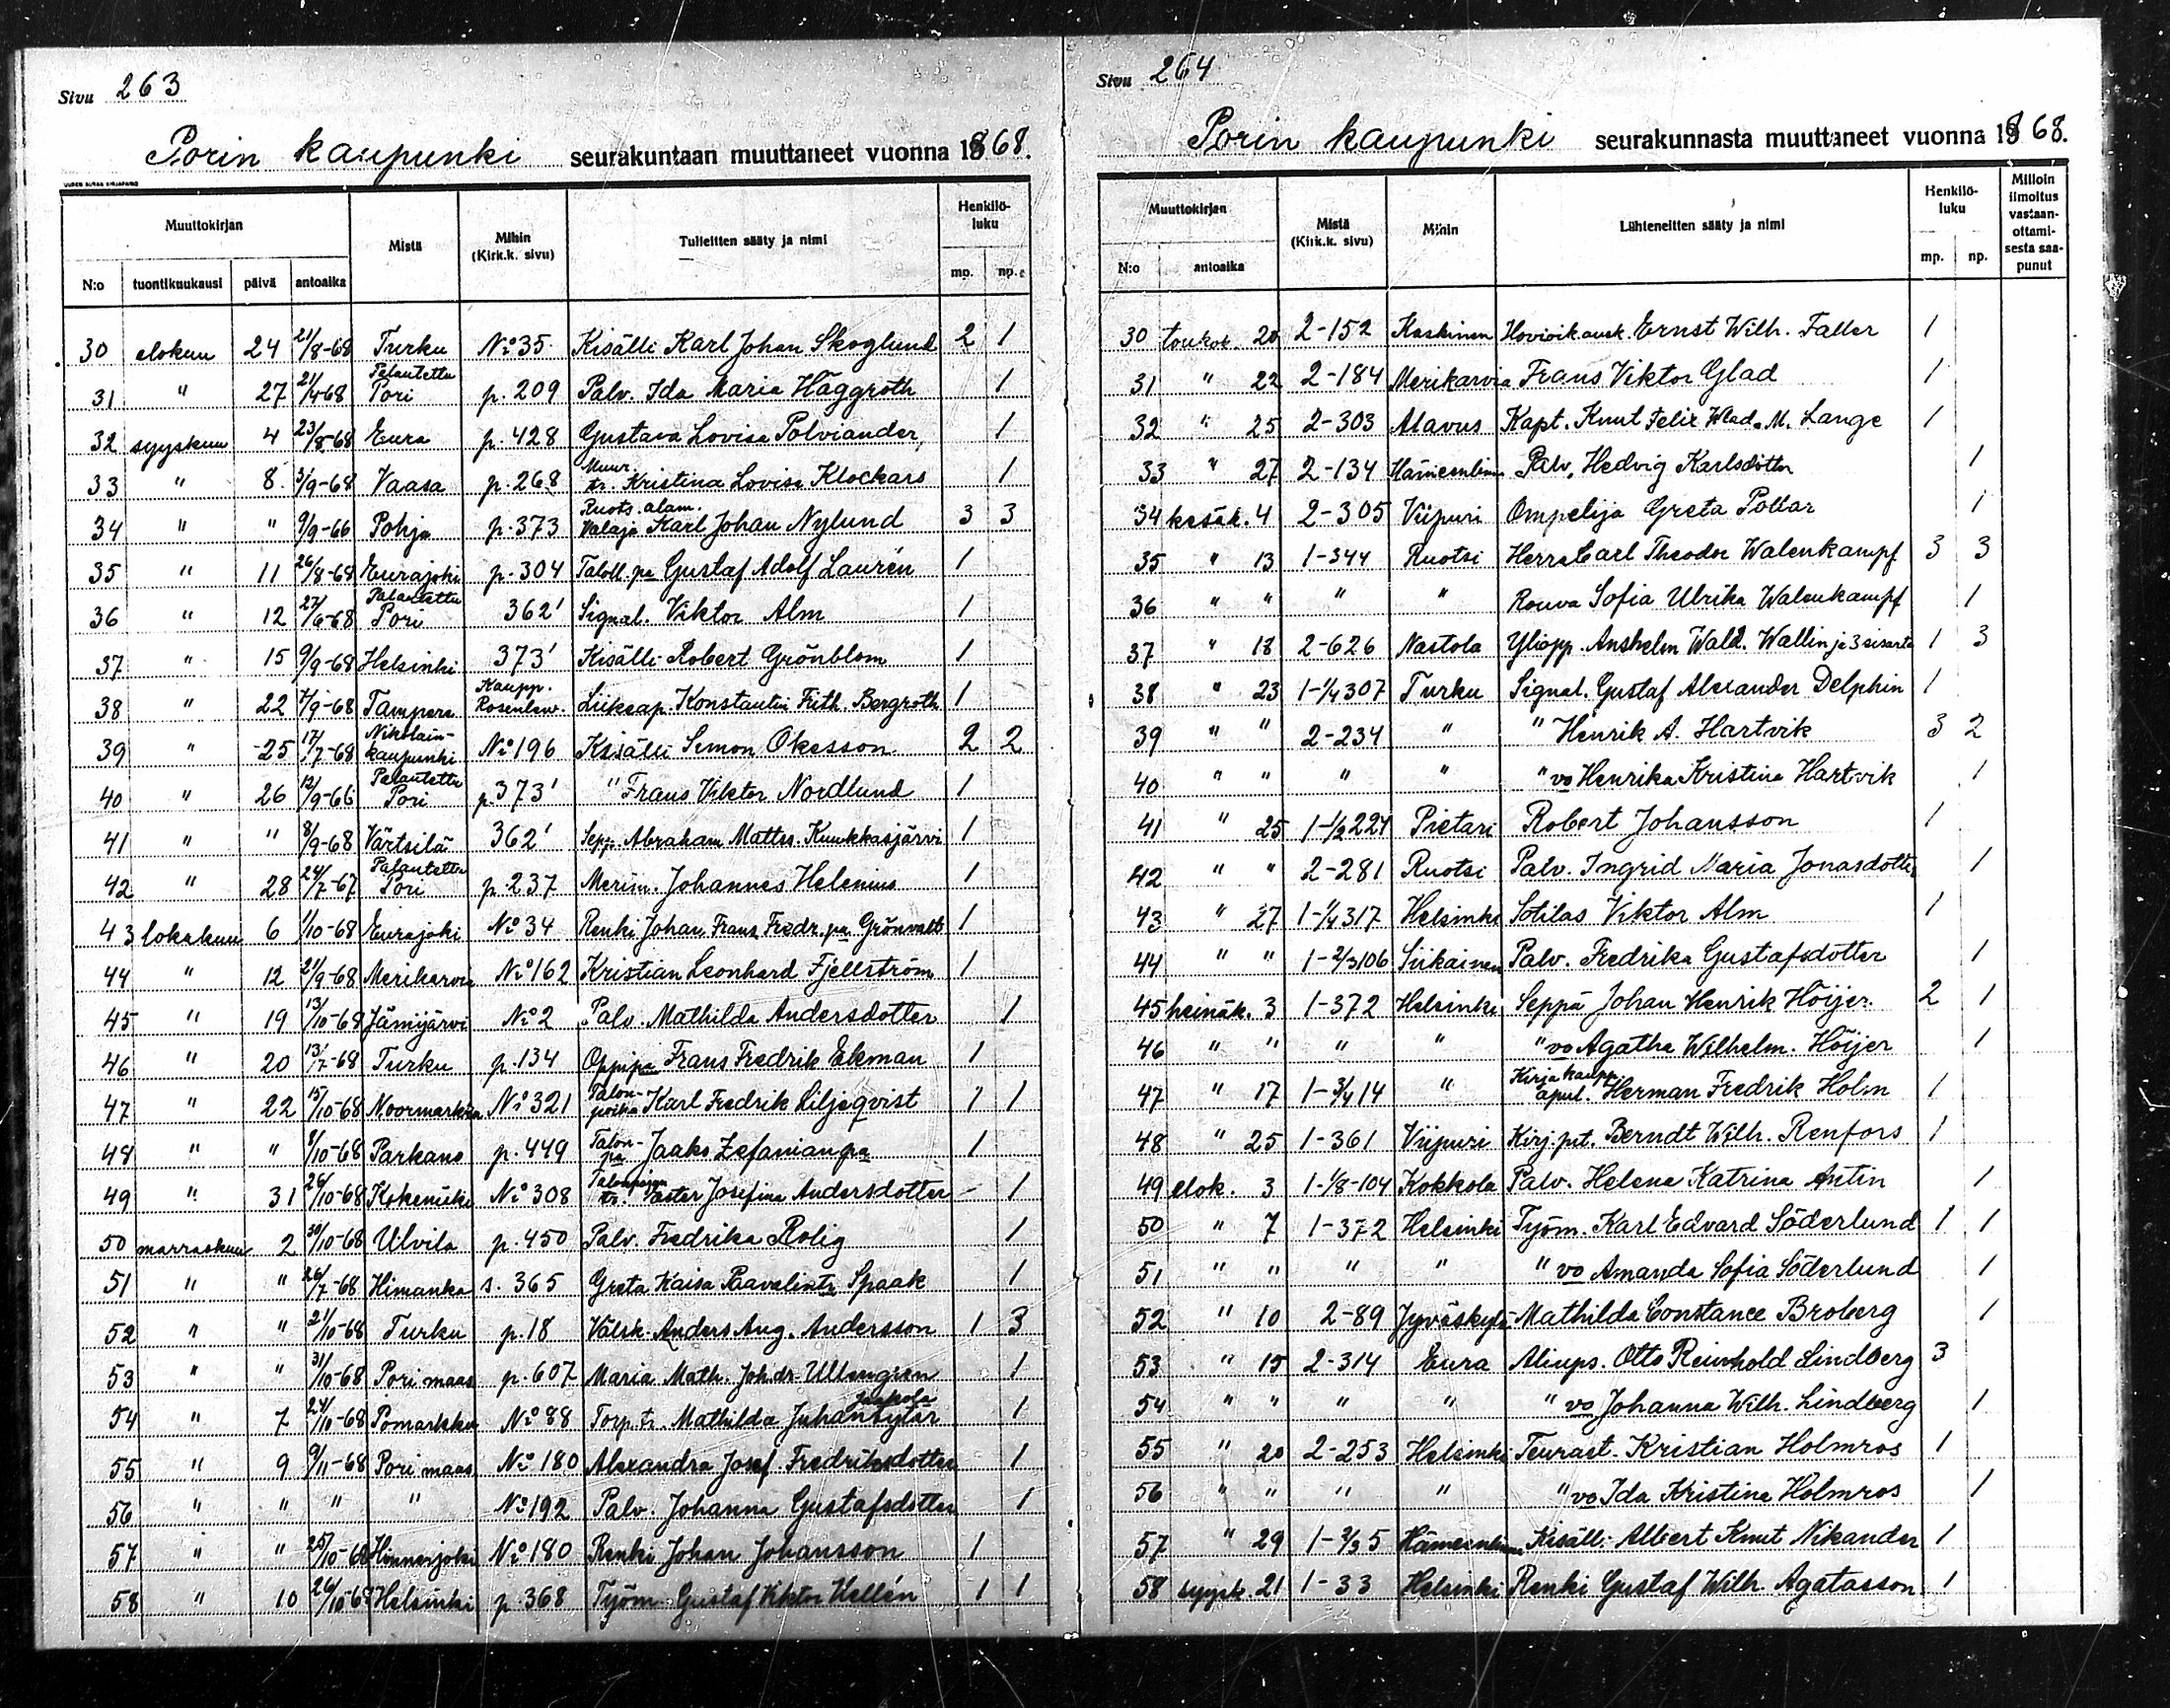 Sivu 263
Porin kaupunki seurakuntaan muuttaneet vuonna 1868.
Muuttokirjan Mistä Mihin (Kirk.k. sivu) Tulleitten sääty ja nimi Henkilöluku
N:o tuontikuukausi päivä antoaika mp. np.
30 elokuu 24 21/8-68 Turku No 35 Kisälli Karl Johan Skoglund 2 1
31 " 27 21/4-68 Palautettu Pori p. 209 Palv. Ida Maria Häggroth 1
32 syyskuu 4 23/8-68 Eura p. 428 Gustava Lovisa Polviander, 1
33 " 8 3/9-68 Vaasa p. 268 Muur. tr. Kristina Lovisa Klockars 1
34 " " 9/9-66 Pohja p. 373 Ruots. alam. Valaja Karl Johan Nylund 3 3
35 " 11 26/8-68 Eurajoki p. 304 Taloll. pa Gustaf Adolf Laurén 1
36 " 12 27/6-68 Palautettu Pori 362' Signal. Viktor Alm 1
37 " 15 9/9-68 Helsinki 373' Kisälli Robert Grönblom 1
38 " 22 7/9-68 Tampere Kaupp. Rosenlew. Liikeap. Konstantin Frith. Bergroth 1
39 " 25 17/7-68 Nikolainkaupunki No 196 Kisälli Simon Okesson 2 2
40 " 26 12/9-66 Palautettu Pori p. 373' " Frans Viktor Nordlund 1
41 " " 8/9-68 Värtsilä 362' Sep. Abraham Mattss. Kuukkasjärvi 1
42 " 28 24/7-67 Palautettu Pori p. 237 Merim. Johannes Helenius 1
43 lokakuu 6 1/10-68 Eurajoki No 34 Renki Johan Frans Fredr. pa Grönvall 1
44 " 12 21/9-68 Merikarvia No 162 Kristian Leonhard Fjellström 1
45 " 19 13/10-68 Jämijärvi No 2 Palv. Mathilda Andersdotter 1
46 " 20 13/7-68 Turku p. 134 Oppipa Frans Fredrik Ekman 1
47 " 22 15/10-68 Noormarkku No 321 Talonpoika Karl Fredrik Liljeqvist 1 1
48 " " 8/10-68 Parkano p. 449 Talonpa Jaako Zefanianpa 1
49 " 31 26/10-68 Kokemäki No 308 Talonpojan tr. Ester Josefina Andersdotter - 1
50 marraskuu 2 30/10-68 Ulvila p. 450 Palv. Fredrika Rolig 1
51 " " 26/7-68 Himanka s. 365 Greta Kaisa Paavalintr Spaak 1
52 " " 21/10-68 Turku p. 18 Välsk. Anders Aug. Andersson 1 3
53 " " 31/10-68 Pori maas p. 607 Maria Math. Joh.dr. 1
54 " 7 24/10-68 Pomarkku No 88 Torp. tr. Mathilda Juhantytär 1
55 " 9 9/11-68 Pori maas No 180 Alexandra Josef. Fredriksdotter 1
56 " " " " No 192 Palv. Johanna Gustafsdotter 1
57 " " 25/10-68 Hinnerjoki No 180 Renki Johan Johansson 1
58 " 10 26/10-68 Helsinki p. 368 Työm. Gustaf Viktor Hellén 1 1
Sivu 264
Porin kaupunki seurakunnasta muuttaneet vuonna 1868.
Muuttokirjan Mistä (Kirk.k. sivu) Mihin Lähteneitten sääty ja nimi Henkilöluku Milloin ilmoitus vastaanottamisesta saapunut
N:o antoaika mp. np.
30 toukok. 20 2-152 Kaskinen Hovioik.ausk. Ernst Wilh. Faller 1
31 " 22 2-184 Merikarvia Frans Viktor Glad 1
32 " 25 2-303 Alavus Kapt. Knut Felix Wlad. M. Lange 1
33 " 27 2-134 Hämeenlinna Palv. Hedvig Karlsdotter 1
34 kesäk. 4 2-305 Viipuri Ompelija Greta Pollar 1
35 " 13 1-344 Ruotsi Herra Carl Theodor Walenkampf 3 3
36 " " " " Rouva Sofia Ulrika Walenkampf 1
37 " 18 2-626 Nastola Yliopp. Anshelm Wald. Wallin ja 3 sisarta 1 3
38 " 23 1-1/4 307 Turku Signal. Gustaf Alexander Delphin 1
39 " " 2-234 " " Henrik A. Hartvik 3 2
40 " " " " " vo Henrika Kristina Hartvik 1
41 " 25 1-1/2 224 Pietari Robert Johansson 1
42 " " 2-281 Ruotsi Palv. Ingrid Maria Jonasdotter 1
43 " 27 1-1/4 317 Helsinki Sotilas Viktor Alm 1
44 " " 1-2/3 106 Siikainen Palv. Fredrika Gustafsdotter 1
45 heinäk. 3 1-372 Helsinki Seppä Johan Henrik Höijer 2 1
46 " " " " " vo Agatha Wilhelm. Höijer 1
47 " 17 1-3/4 14 " Kirjakaupp. apul. Herman Fredrik Holm 1
48 " 25 1-361 Viipuri Kirj.pit. Berndt Wilh. Renfors 1
49 elok. 3 1-1/8-104 Kokkola Palv. Helena Katrina Antin 1
50 " 7 1-372 Helsinki Työm. Karl Edvard Söderlund 1 1
51 " " " " " vo Amanda Sofia Söderlund 1
52 " 10 2-89 Jyväskylä Mathilda Constance Broberg 1
53 " 15 2-314 Eura Aliups. Otto Reinhold Lindberg 3
54 " " " " " vo Johanna Wilh. Lindberg 1
55 " 20 2-253 Helsinki Teurast. Kristian Holmros 1
56 " " " " " vo Ida Kristina Holmros 1
57 " 29 1-2/3 5 Hämeenlinna Kisälli Albert Knut Nikander 1
58 syysk. 21 1-33 Helsinki Renki Gustaf Wilh. Agatasson 1